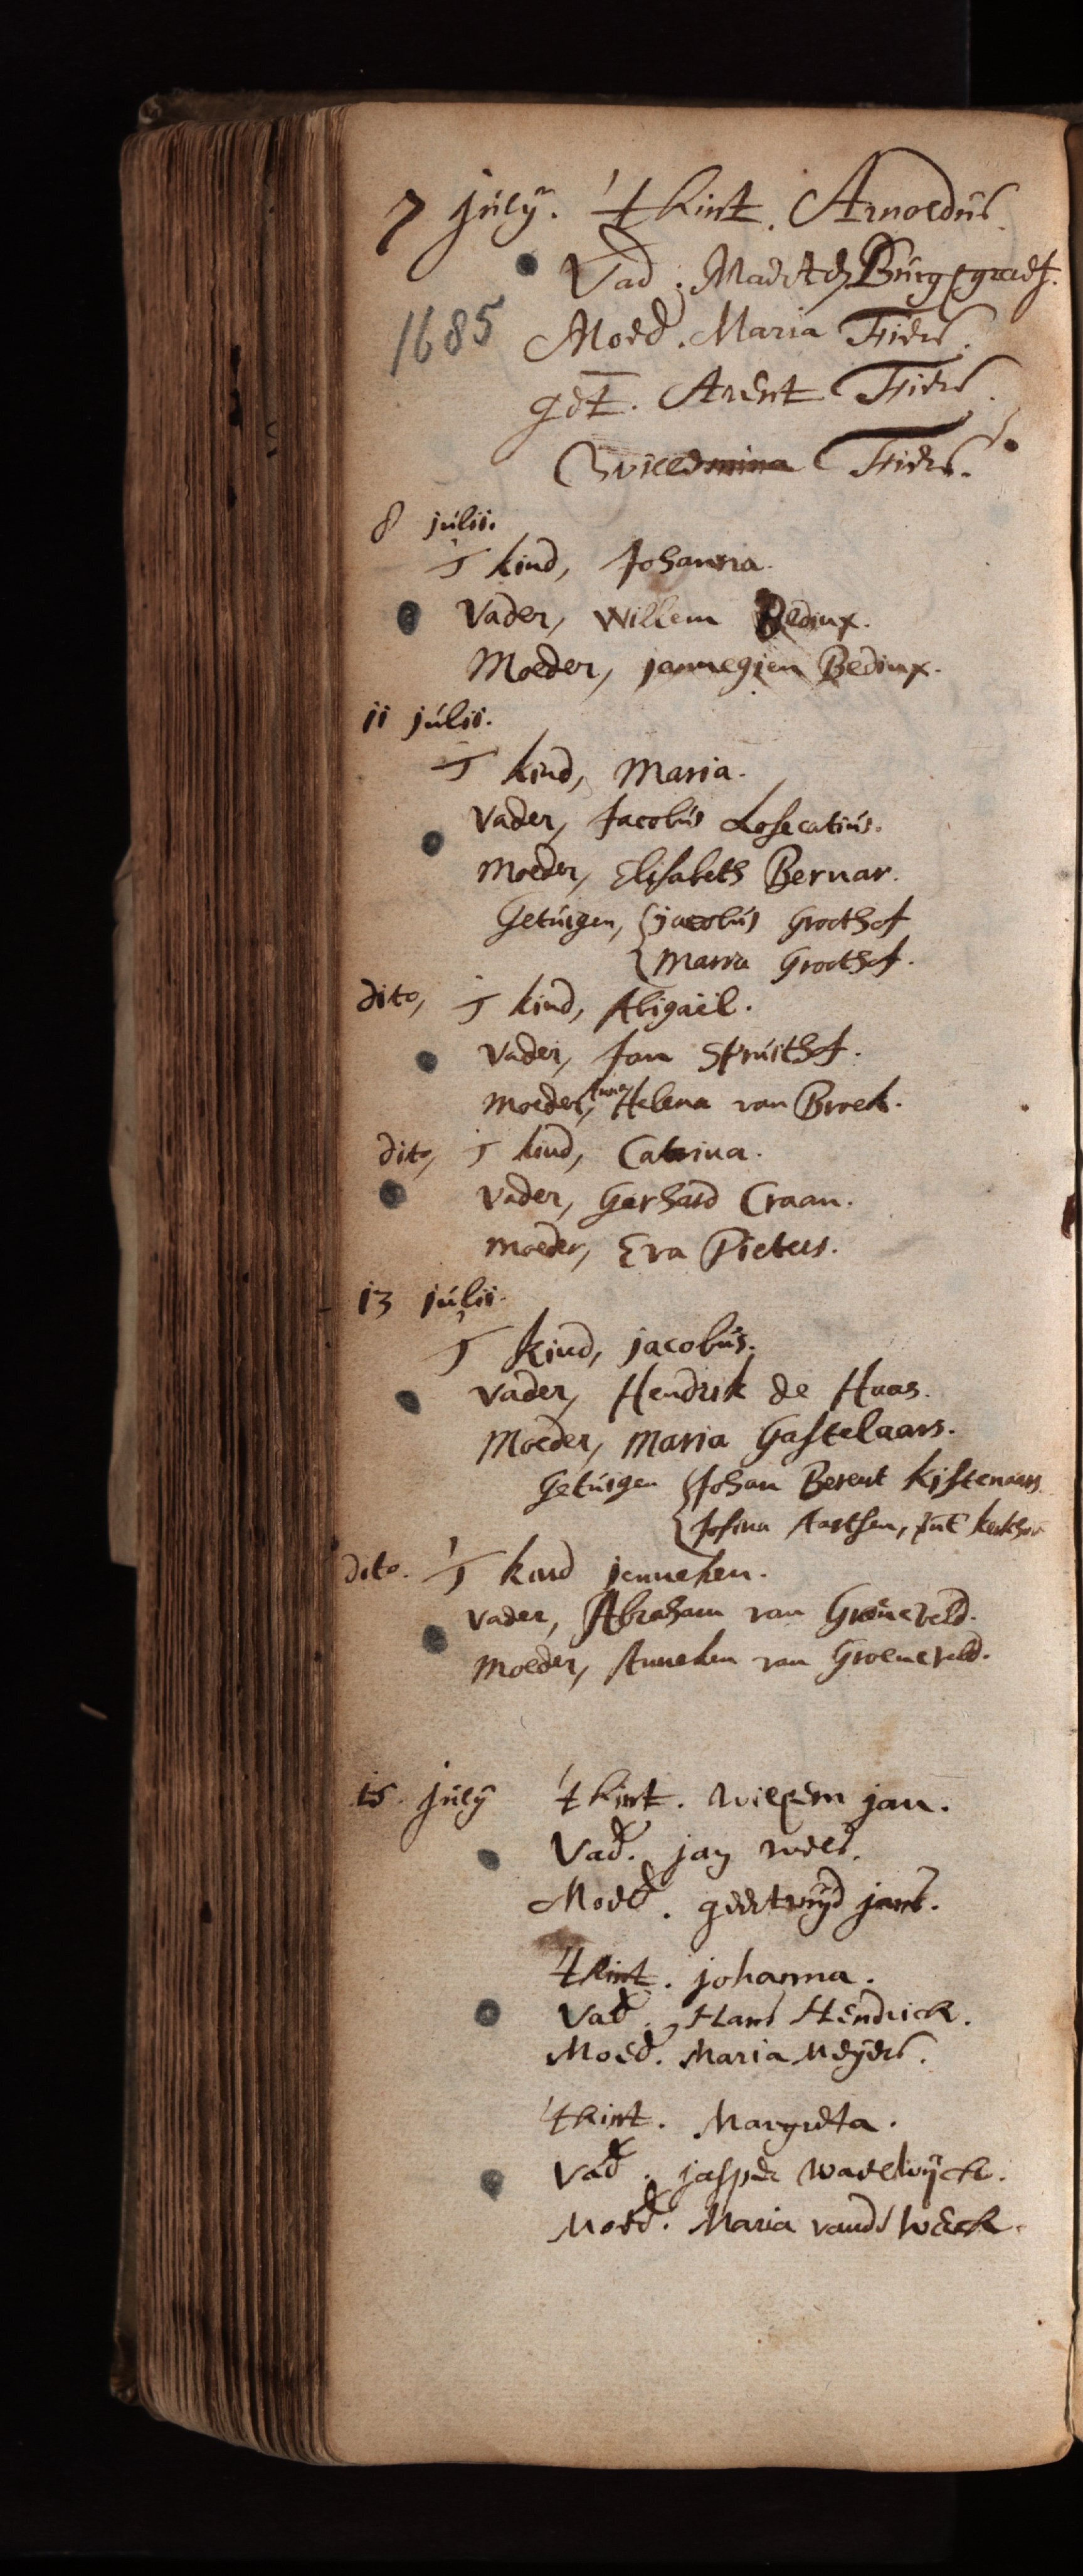 7 julij. 't kint. Arnoldus.
Vad. Burggraef.
1685
Moed. Maria Fiers.
get. Arent Fiers.
Fiers.
8 julii.
'T kind, Johanna.
Vader, Willem Bedinx.
Moeder, jannegien Bedinx.
11 julii.
'T kind, Maria.
Vader, Jacobus Losecatius.
Moeder, Elisabeth Bernar.
Getuigen, {jacobus Groothof
{Maria Groothof.
dito, 'T kind, Abigaël.
Vader, Jan Spruithof.
Moeder, Anna Helena van Broek.
dito, 'T kind, Catrina.
Vader, Gerhard Craan.
Moeder, Eva Pieters.
13 julii.
'T kind, jacobus.
Vader, Hendrik de Haas.
Moeder, Maria Gastelaars.
Getuigen {Johan Berent Kistenaars
{Josina Aartsen,
dito. 'T kind jenneken.
Vader, Abraham van Groeneveld.
Moeder, Anneken van Groeneveld.
15. julij 't kint. Willem jan.
Vad. jan
Moed. geertruijd jans.
't kint. johanna.
Vad. Hans Hendrick.
Moed. Maria Meijers.
't kint. Margreta.
Vad. jasper
Moed. Maria vande